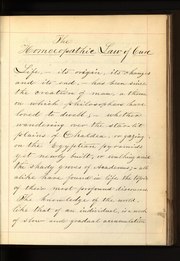 The
Homoeopathic Law of Cure
Life, - its origin, its changes
and its end, - has been since
the creation of man, a theme
on which philosophers have
loved to dwell; - whether
wandering over the star-lit
plains of Chaldea, or gazing
on the Egyptian pyramids
yet newly built, or walking amid
the shady groves of Academus, - all
alike have found in life the topic
of their most profound discourse.
The knowledge of the world
like that of an individual, is a work
of slow and gradual accumulation